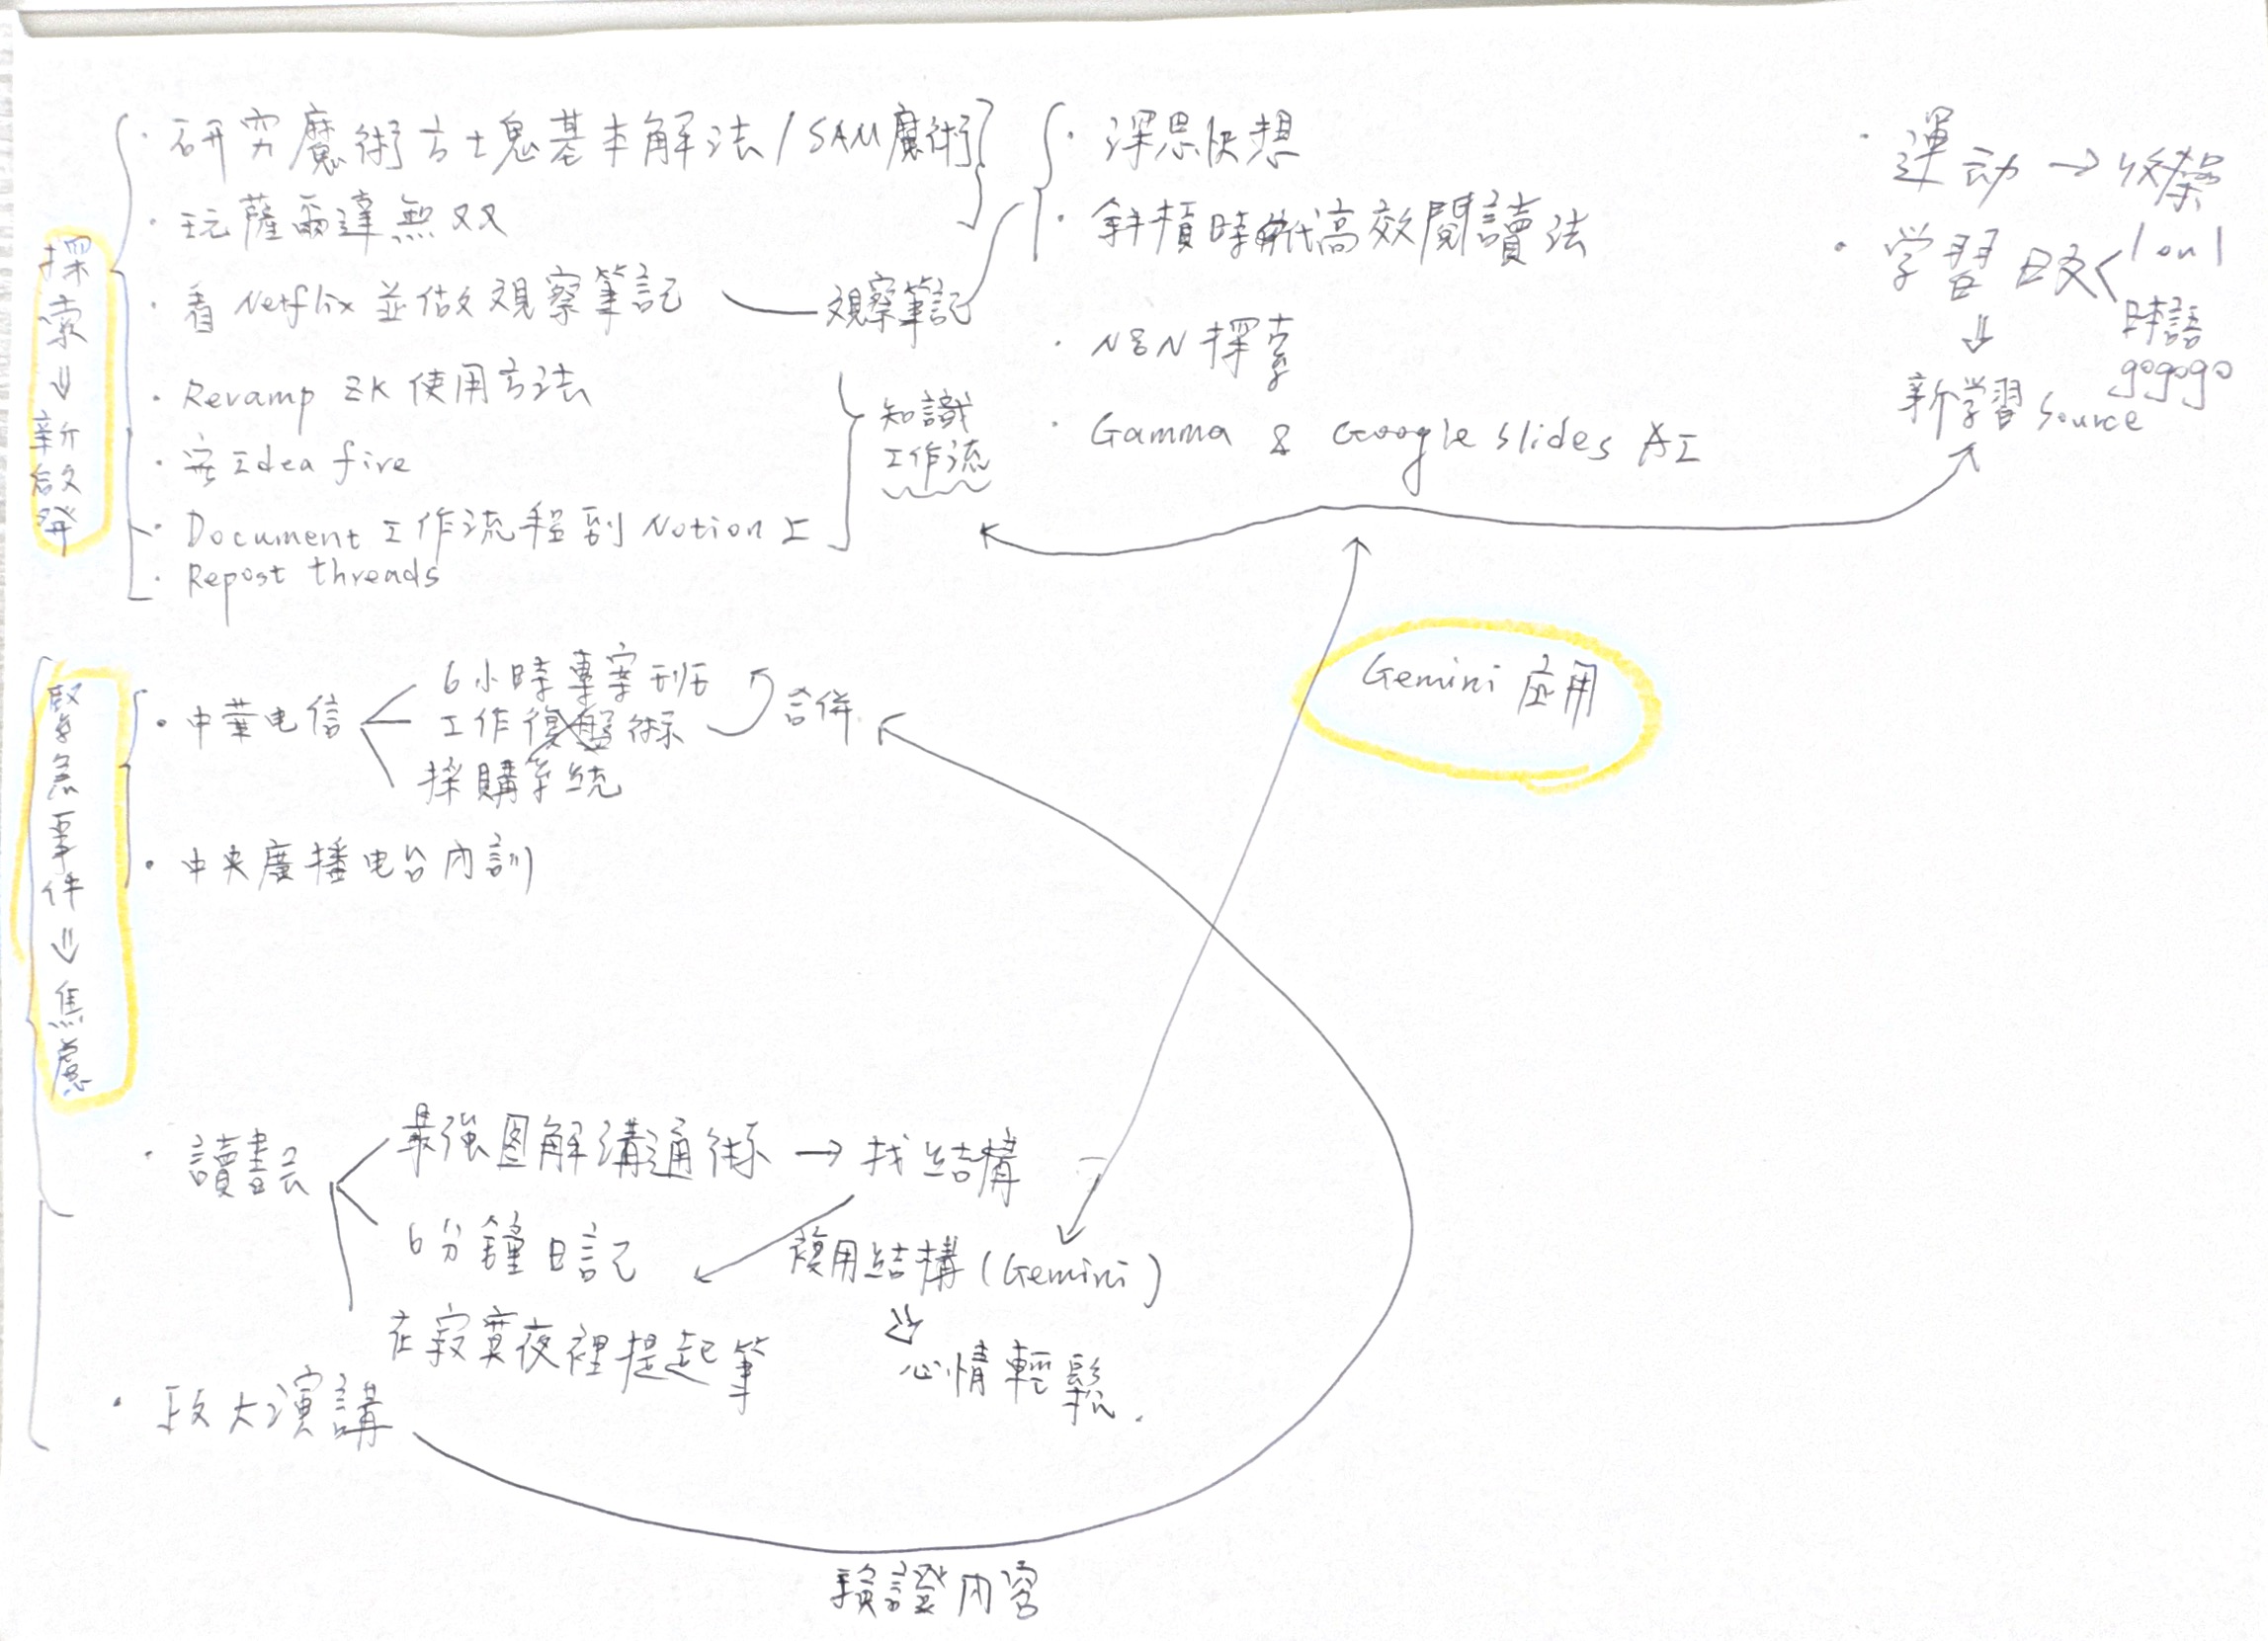 探索⇒新啟發
・研究魔術方塊基本解法/SAM魔術
・玩薩爾達無双
・看 Netflix 並做观察筆記
观察筆記
・Revamp ZK 使用方法
・ Idea fire
・Document 工作流程到 Notion 上
・Repost threads
知識
工作流
・深思快想
・斜槓時代高效閱讀法
・N8N 探索
・Gamma & Google slides AI
・運动 → 收操
・学習日文
1 on 1
日語
gogogo
⇓
新学習 source
緊急事件⇒焦慮
・中華电信
6小時專案班
工作復盤術
採購系統
合併
・中央廣播电台內訓
Gemini 应用
・讀書会
最強图解溝通術 → 找結構
6分鐘日記
複用結構 (Gemini)
⇓
心情輕鬆.
在寂寞夜裡提起筆
・政大演講
驗證內容